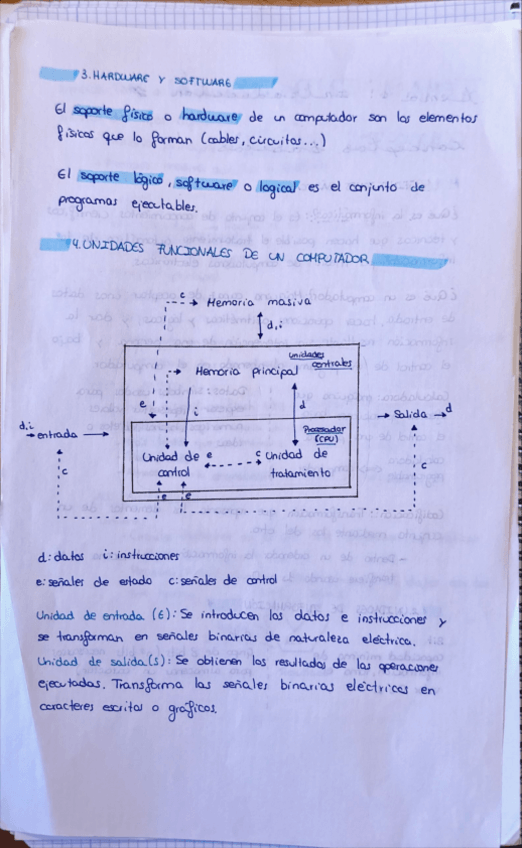 3. HARDWARE Y SOFTWARE
El soporte físico o hardware de un computador son los elementos
físicos que lo forman (cables, circuitos...)
El soporte lógico, software o logical es el conjunto de
programas ejecutables.
4. UNIDADES FUNCIONALES DE UN COMPUTADOR
c Memoria masiva
d,i
Unidades
centrales
Memoria principal
e i d
d,i
entrada
Procesador
(CPU)
Salida d
Unidad de
control
e c
Unidad de
tratamiento
c c
e e
d: datos i: instrucciones
e: señales de estado c: señales de control
Unidad de entrada (E): Se introducen los datos e instrucciones y
se transforman en señales binarias de naturaleza eléctrica.
Unidad de salida (S): Se obtienen los resultados de las operaciones
ejecutadas. Transforma las señales binarias eléctricas en
caracteres escritos o gráficos.